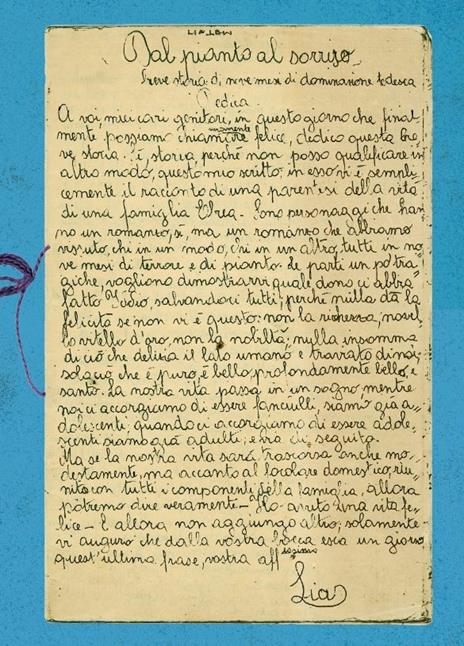 Dal pianto al sorriso
Breve storia di nove mesi di dominazione tedesca
Dedica
A voi, miei cari genitori, in questo giorno che final-
mente possiamo chiamare veramente felice, dedico questa bre-
ve storia. È storia perché non posso qualificare in
altro modo, questo mio scritto; in esso vi è sempli-
cemente il racconto di una parentesi della vita
di una famiglia Ebrea. Sono personaggi che han-
no un romanzo, sì, ma un romanzo che abbiamo
vissuto, chi in un modo, chi in un altro, tutti in no-
ve mesi di terrore e di pianto. Le parti un po' tra-
giche, vogliono dimostrarvi quale dono ci abbia
fatto Iddio, salvandoci tutti; perché nulla dà la
felicità se non vi è questo: non la richezza, non il
vitello d'oro, non la nobiltà; nulla insomma
di ciò che delizia il lato umano e
solo ciò che è puro, è bello, profondamente bello, e
santo. La nostra vita passa in un sogno, mentre
noi ci accorgiamo di essere fanciulli, siamo già a-
dolescenti, quando ci accorgiamo di essere adole-
scenti siamo già adulti; e via di seguito.
Ma se la nostra vita sarà trascorsa anche mo-
destamente, ma accanto al focolare domestico, riu-
nita con tutti i componenti della famiglia, allora
potremo dire veramente - Ho avuto una vita fe-
lice - E allora non aggiungo altro; solamente
vi auguro che dalla vostra bocca esca un giorno
quest'ultima frase, vostra aff.issima
Lia